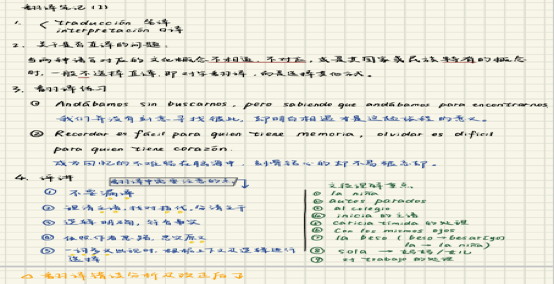 翻译笔记(1)
1. traducción 笔译
interpretación 口译
2. 关于是否直译的问题:
当两种语言对应的文化概念不相通、不对应,或是某国家或民族特有的概念
时,一般不选择直译,即对字翻译,而是选择其他方式。
3. 翻译练习
① Andábamos sin buscarnos, pero sabiendo que andábamos para encontrarnos
我们并没有刻意寻找彼此,却明白相遇才是这段旅程的意义。
② Recordar es fácil para quien tiene memoria, olvidar es difícil
para quien tiene corazón.
4. 评讲
翻译中需要注意的点
① 不要漏译
② 理清主语,
③ 选择明确,符合原文
④ 依照作者思路,忠实原文
⑤ 一词多义出现时,根据上下文及选择进行
选择
文段理解重点
① la niña
② autos parados
③ al colegio
④ inicia 的主语
⑤ caricia tímida 的处理
⑥ Con los mismos ojos
⑦ la beso (beso → besar (yo)
la → la niña)
⑧ sola →
⑨ el trabajo 的处理